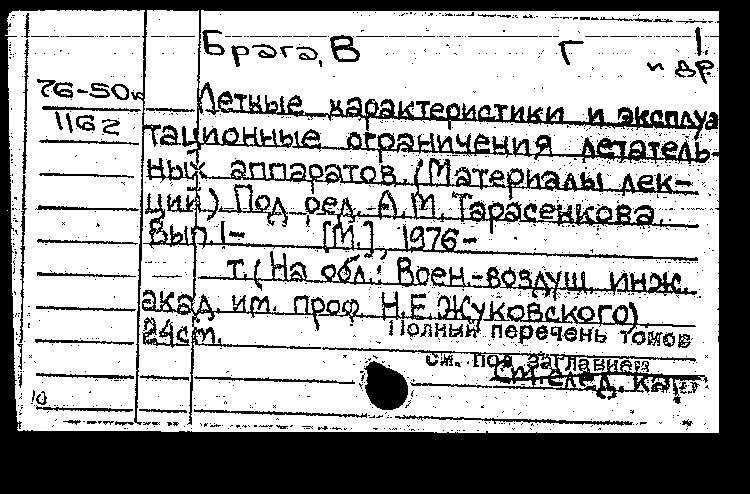 Брага, В Г !
и др.
76-50к
1162
Летные характеристики и эксплуа
тационные ограничения летатель-
ных аппаратов. (Материалы лек-
ций) Под ред. А.М. Тарасенкова.
Вып. 1- [М.], 1976-
т. (На обл.: Воен.-воздуш. инж.
акад. им. проф. Н.Е. Жуковского).
24см. Полный перечень томов
см. под заглавием
См. след. карт.
10